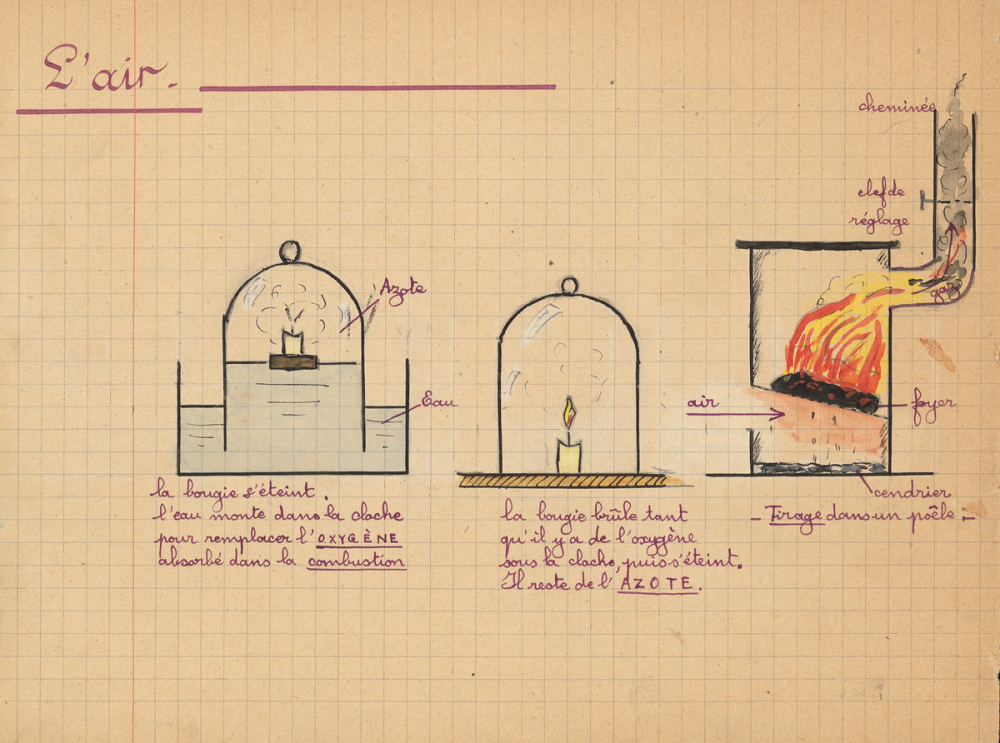 L'air.
cheminée
clef de
réglage
gaz
Azote
Eau
air
foyer
cendrier
- Tirage dans un poêle :-
la bougie s'éteint.
l'eau monte dans la cloche
pour remplacer l'OXYGÈNE
absorbé dans la combustion
la bougie brûle tant
qu'il y a de l'oxygène
sous la cloche, puis s'éteint.
Il reste de l'AZOTE.